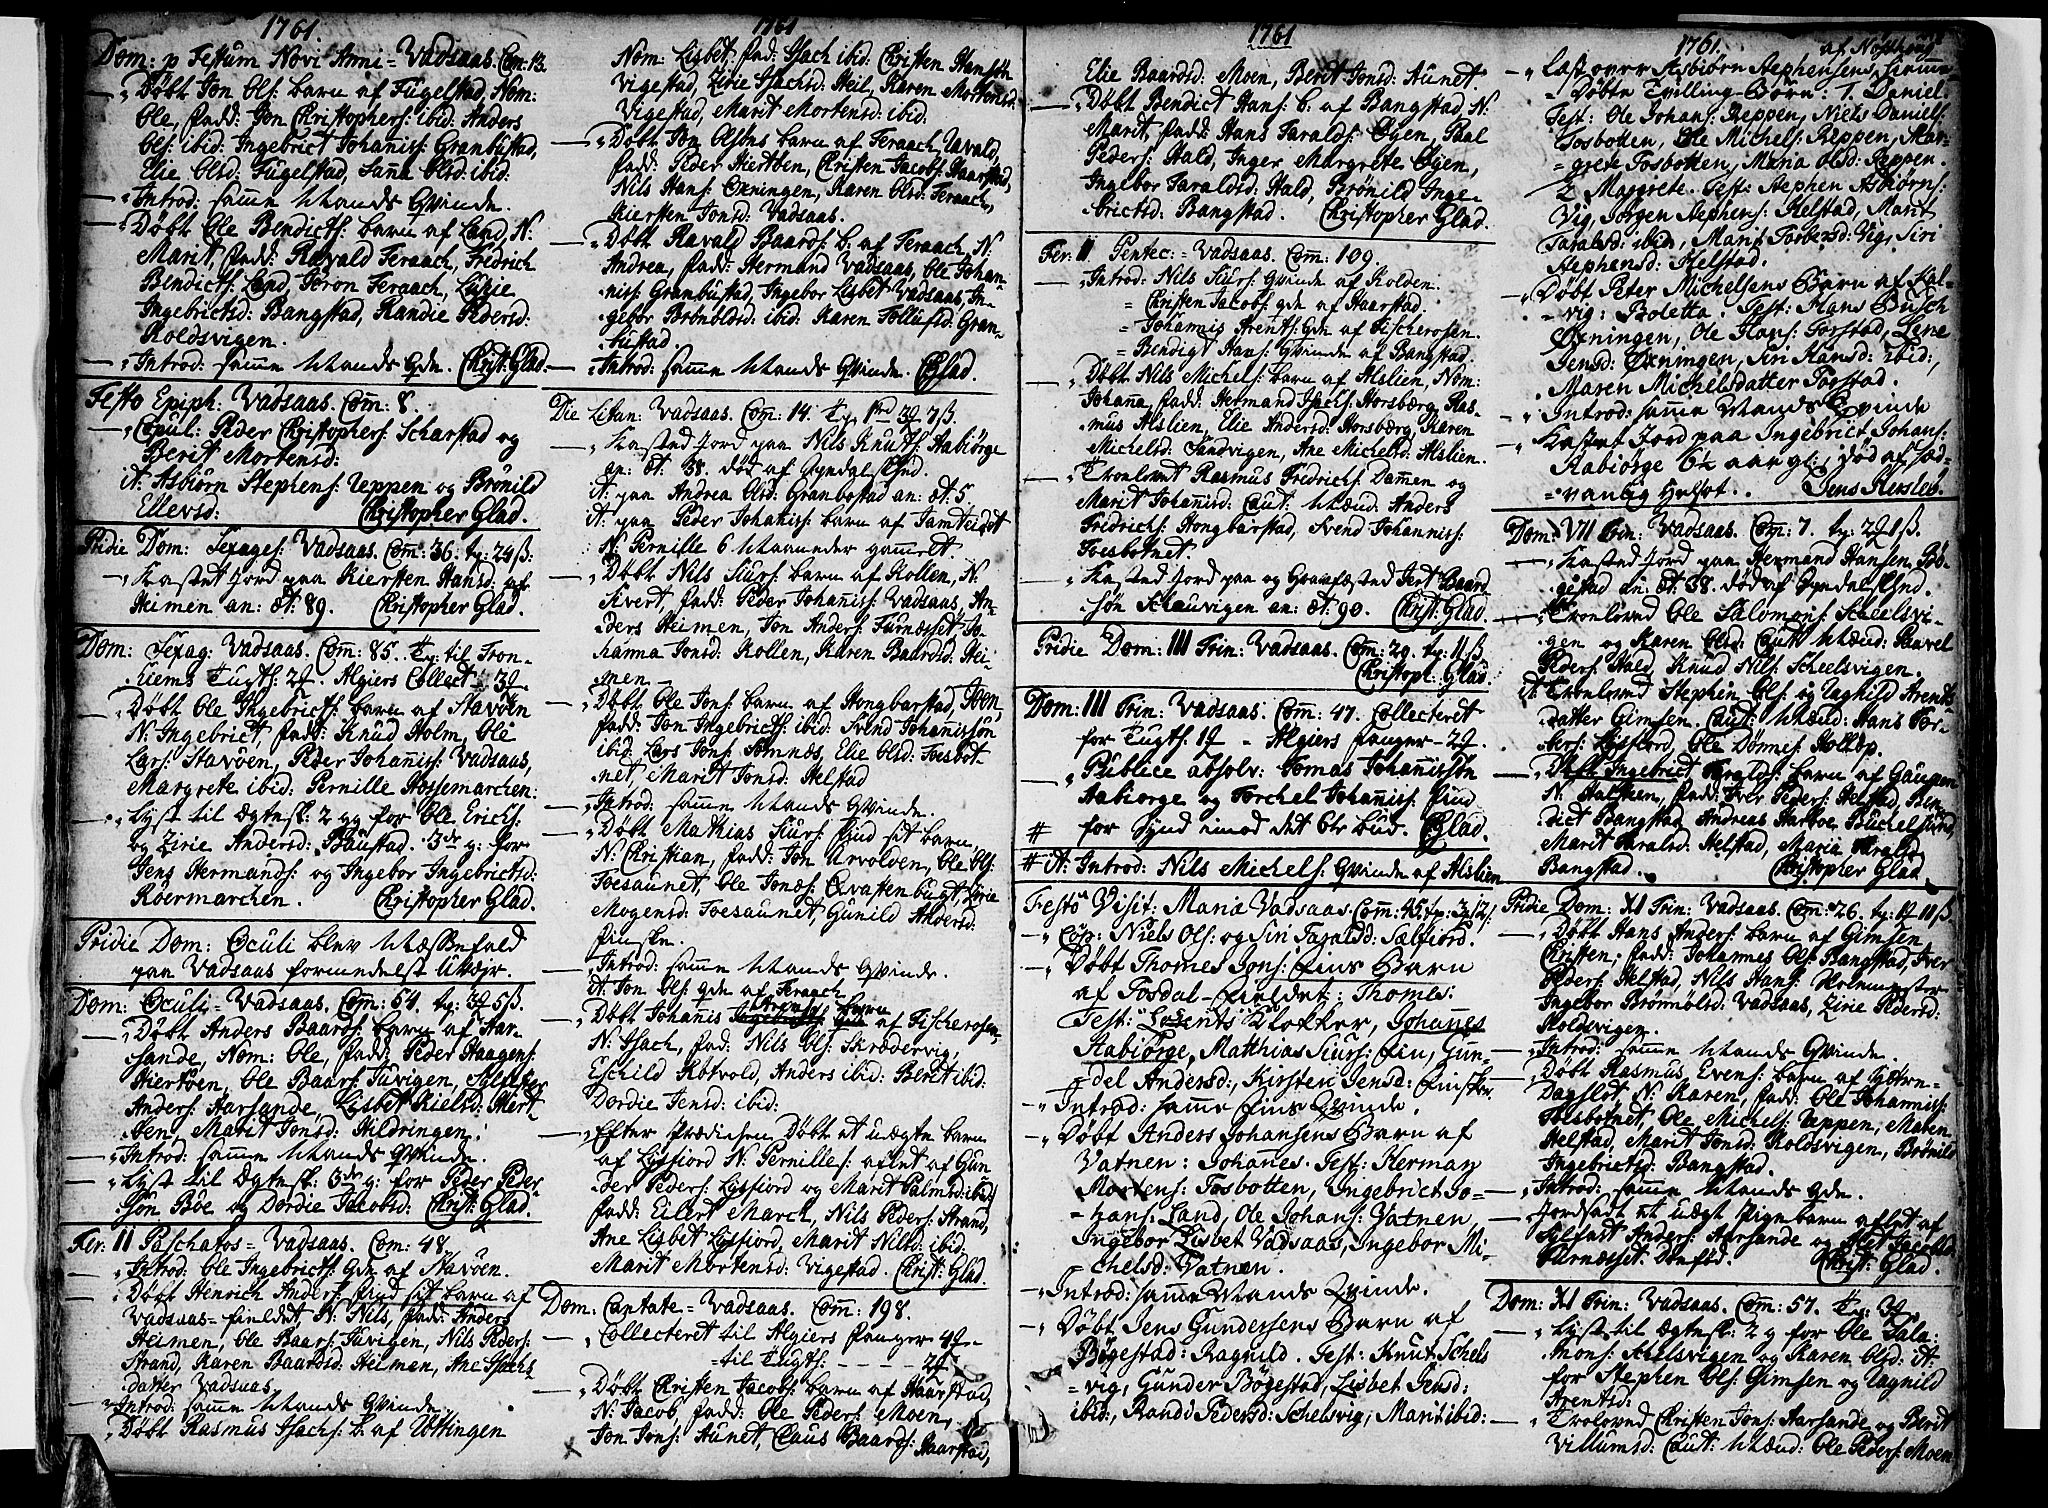 1761.
Dom: p Festum Novi Anni = Vadsaas. Com: 13.
Døbt Jon Ols: barn af Fugelstad, Nom:
Ole, fadd: Jon Christophers: ibid: Anders
Ols: ibid: Ingebrict Johaniss: Granbustad,
Elie Olsd: Fugelstad, Sana Olsd: ibid:
Introd: samme Mands Qvinde.
Døbt Ole Bendicts: barn af Land, N:
Marit, fadd: Ravald Feraach, Fredrich
Bendicts: Land, Joron Feraach, Lucie
Ingebrictsd: Bangstad, Randie Pedersd:
Koldsvigen.
Introd: samme Mands Qde. Christ: Glad.
Festo Epiph: Vadsaas. Com: 8.
Copul: Peder Christophers: Scharstad og
Berit Mortensd:
it: Asbiørn Stephens: Reppen og Brønild
Ellevsd: Christopher Glad.
Pridie Dom: Sexages: Vadsaas. Com: 36. tg: 24ß:
Kastet Jord paa Kiersten Hansd: af
Heimen an: æt: 89. Christopher Glad.
Dom: Sexag: Vadsaas. Com: 85. Tg: til Tron-
hiems Tugth: 2 Algiers Collect: 3
Døbt Ole Ingebricts: barn af Stavøen
N: Ingebrict, fadd: Knud Holm, Ole
Lars: Stavøen, Peder Johaniss: Vadsaas,
Margrete ibid: Pernille Hossemarchen:
Lyst til Ægtesk: 2 g for Ole Erichs:
og Zirie Andersd: Baustad. 3de g: for
Jens Hermands: og Ingebor Ingebrictsd:
Røermarchen. Christopher Glad.
Pridie Dom: Oculi blev Messefald
paa Vadsaas formedelst Uvejr.
Dom: Oculi = Vadsaas. Com: 54. tg: 3 5ß.
Døbt Anders Baards: barn af Aar-
sande, Nom: Ole, fadd: Peder Haagens:
Hiertøen, Ole Baars: Tuvigen,
Anders: Aarsande, Lisbet Nielsd: Hiert
øen, Marit Jonsd: Hildringen.
Introd: samme Mands Qvinde.
Lyst til Ægtesk: 3de g: for Peder Peder-
søn Bøe og Dordie Jacobsd: Christ: Glad.
Fer: II Paschatos = Vadsaas. Com: 48.
Introd: Ole Ingebricts: Qde af Stavøen.
Døbt Henrich Anders: find sit barn af
Vadsaas = fieldet, N: Nils, fadd: Anders
Heimen, Ole Baars: Tuvigen, Nils Peders:
Strand, Karen Baardsd: Heimen, Ane Isachs
datter Vadsaas.
Introd: samme Mands Qvinde.
Døbt Rasmus Isachs: b. af Uttingen
1761
Nom: Lisbet, fad: Isach ibid: Christen Hanssøn
Vigestad, Zirie Isachsd: Heil, Karen Mortensd:
Vigestad, Marit Mortensd: ibid:
Døbt Jon Olsøns barn af Feraach, Ravald,
fadd: Peder Hiertøen, Christen Jacobs: Haarstad,
Nils Hans: Øxningen, Karen Olsd: Feraach,
Kiersten Jonsd: Vadsaas.
Døbt Ravald Baards: b. af Feraach, N:
Andrea, fadd: Hermand Vadsaas, Ole Johan-
niss: Granbustad, Ingebor Lisbet Vadsaas, In-
gebor Brønbldsd: ibid: Karen Tollufsd: Gran-
bustad.
Introd: samme Mands Qvinde. CGlad.
Die Litan: Vadsaas. Com: 14.
Kasted Jord paa Nils Knuts: Aabiørge
an: æt: 38. død af
it: paa Andrea Olsd: Granbostad an: æt: 5.
it: paa Peder Johaniss: barn af Jamteidet
N: Pernille 6 Maaneder gammelt
Døbt Nils Siurs: barn af Kollen, N:
Sivert, fadd: Peder Johaniss: Vadsaas, An-
ders Heimen, Jon Anders: Furnæsset Jo-
hanna Jonsd: Kollen, Karen Baardsd: Hei-
men
Døbt Ole Jons: barn af Hongbarstad, Joen,
fadd: Jon Ingebricts: ibid: Svend Johanissøn
ibid: Lars Jons: Somnæs, Elie Olsd: Fosbot-
net, Marit Jonsd: Helstad
Introd: samme Mands Qvinde.
Døbt Mathias Siurs: find sit barn,
N: Christian, fadd: Jon Urvolden, Ole Ols:
Toesaunet, Ole Jonæs: Qvastenbugt, Zirie
Mogensd: Toesaunet, Gunild Andersd:
finske.
Introd: samme Mands Qvinde.
it: Jon Ols: qde af Feraach
Døbt Johanis Arents: barn af Fischerosen,
N: Isach, fad: Nils Ols: Skrødervig,
Eschild Røtvold, Anders ibid: Beret ibid:
Dordie Jensd: ibid:
Efter Prædichen Døbt et uægte barn
af Lysfiord N: Pernille: aflet af Gun-
der Peders: Lysfiord og Marit Palmsd: ibid
fadd: Eilert March, Nils Peders: Strand,
Ane Lisbet Lysfiord, Marit Nilsd: ibid:
Marit Mortensd: Vigestad. Christ: Glad.
Dom: Cantate = Vadsaas. Com: 198.
Collecteret til Algiers fanger 4
= til Tugth: - - - - 2
Døbt Christen Jacobs: barn af Haarstad,
N: Jacob, fadd: Ole Peders: Moen,
Jon Jons: Aunet, Claus Baards: Haarstad,
1761
Elie Baardsd: Moen, Berit Jonsd: Aunet.
Døbt Bendict Hans: b. af Bangstad, N:
Marit, fadd: Hans Taralds: Øyen, Paal
Peders: Hald, Inger Margrete Øyen,
Ingebor Taraldsd: Hald, Perønild Inge-
brictsd: Bangstad. Christopher Glad.
Fer: II Pentec: = Vadsaas. Com: 109.
Introd: Nils Siurs: Qvinde af Kolden
= Christen Jacobs: qde af Haarstad.
= Johannis Arents: Qde af Fischerosen.
= Bendigt Hans: Qvinde af Bangstad.
Døbt Nils Michels: barn af Alslien, Nom:
Johana, fadd: Hermand Isachs: Horsbærg, Ras-
mus Alslien, Elie Andersd: Horsbærg, Karen
Michelsd: Sandvigen, Ane Michelsd: Alslien.
Tronlovet Rasmus Fredrichs: Dammen og
Marit Johanisd: Caut: Mænd: Anders
Fridrichs: Hongbarstad, Svend Johaniss:
Foesbotnet.
Kasted Jord paa og Gramfæsted Iert Baard
søn Schauvigen an: æt: 90. Christ: Glad.
Pridie Dom: III Trin: Vadsaas. Com: 20. tg: 11ß
Christoph: Glad.
Dom: III Trin: Vadsaas. Com: 47. Collecteret
for Tugth: 1 - Algiers fanger - 2
Publice absolv: Tomas Johanissøn
Aabiørge og Torchel Johaniss: find
# for Synd imod det 6te bud. CGlad.
# it: Introd: Nils Michels: Qvinde af Alslien
Festo Visit: Mariæ Vadsaas. Com: 45.
Cop: Niels Ols: og Siri Taralsd: Sælfiord.
Døbt Thomes Jons: Fins Barn
af Tosdal-Fieldet: Thomes.
Test: Lorents Klokker, Johannes
Aabiørge, Matthias Siurs: Fin, Gun-
del Andersd:, Kirsten Jensd: Finsken.
Introd: samme Fins Qvinde.
Døbt Anders Johansens Barn af
Vatnen: Johanes. Test: Herman
Mortens: Tosbotten, Ingebrict Jo-
hans: Land, Ole Johans: Vatnen,
Ingebor Lisbet Vadsaas, Ingebor Mi-
chelsd: Vatnen.
Introd: samme Mands Qvinde.
Døbt Jens Gundersens Barn af
Bøgestad: Ragnild. Test: Knut Schels
vig, Gunder Bøgestad, Lisbet Jensd:
ibid:, Randi Pedersd: Schelsvig, Marit ibid:
1761.
Døbte Tvilling-Børn: 1. Daniel.
Test: Ole Johans: Reppen, Niels Daniels:
Tosbotten, Ole Michels: Reppen, Mar-
grete Tosbotten, Maria Olsd: Reppen.
2 Margrete. Test: Stephen Asbiørns:
Vig, Jørgen Stephens: Helstad, Marit
Taralsd: ibid, Marit Torbersd: Vig, Siri
Stephensd: Helstad.
Døbt Peter Michelsens Barn af Kal-
vig: Boletta. Test: Hans Busch
Øxningen, Ole Hans: Torstad, Lene
Jensd: Øxningen, Siri Hansd: ibid,
Maren Michelsdatter Torstad.
Introd: samme Mands Qvinde
Kastet Jord paa Ingebrict Johans:
Aabiørge 6½ aar gl: død af sæd-
vanlig Hulsot. Jens Kusleb.
Dom: VII Trin: Vadsaas. Com: 7.
Kasted Jord paa Hermand Hansen Bø-
gestad an: æt: 38. død af
Tronlovet Ole Salomons: Scheelsvi-
gen og Karen Olsd: Caut: Mænd: Paavel
Peders: Hald, Knud Nils: Scheelsvigen.
it: Tronlovet Stephen Ols: og Ragnild Arents-
datter Gimsen. Caut: Mænd: Hans Tor-
bers: Lysfiord, Ole Dønnes: Holløp.
Døbt Ingebrict Taralds: barn af Gaupen
N: Halsteen, fadd: Iver Peders: Helstad, Ben-
dict Bangstad, Andreas Harboe, Buchelsund,
Marit Taralsd: Helstad, Maria Taralsd
Bangstad. Christopher Glad
Pridie Dom: XI Trin: Vadsaas. Com: 26.
Døbt Hans Anders: barn af Gimsen
Christen, fadd: Johannes Ols: Bangstad, Iver
Peders: Helstad, Nils Hans:
Ingebor Brønnølsd: Vadsaas, Zirie Pedersd:
Koldsvigen.
Introd: samme Mands Qvinde.
Døbt Rasmus Evens: barn af
Dagslot, N: Karen, fadd: Ole Johanniss:
Tosbotnet, Ole Michels: Reppen, Maren
Helstad, Marit Jonsd: Koldsvigen, Brønild
Ingebrictsd: Bangstad.
Introd: samme Mands Qde.
Jordsadt et uægt Pigebarn aflet af
Anders: Aarsande og
Furnæsset. Christ: Glad.
Dom: XI Trin: Vadsaas. Com: 57.
Lyst til Ægtesk: 2 g for Ole Sala-
mons: Schelsvigen og Karen Olsd: it:
for Stephen Ols: Gimsen og Ragnild
Arentsd:
Troloved Christen Jons: Aarsande og Berit
Villumsd: Caut: Mænd: Ole Peders: Moen